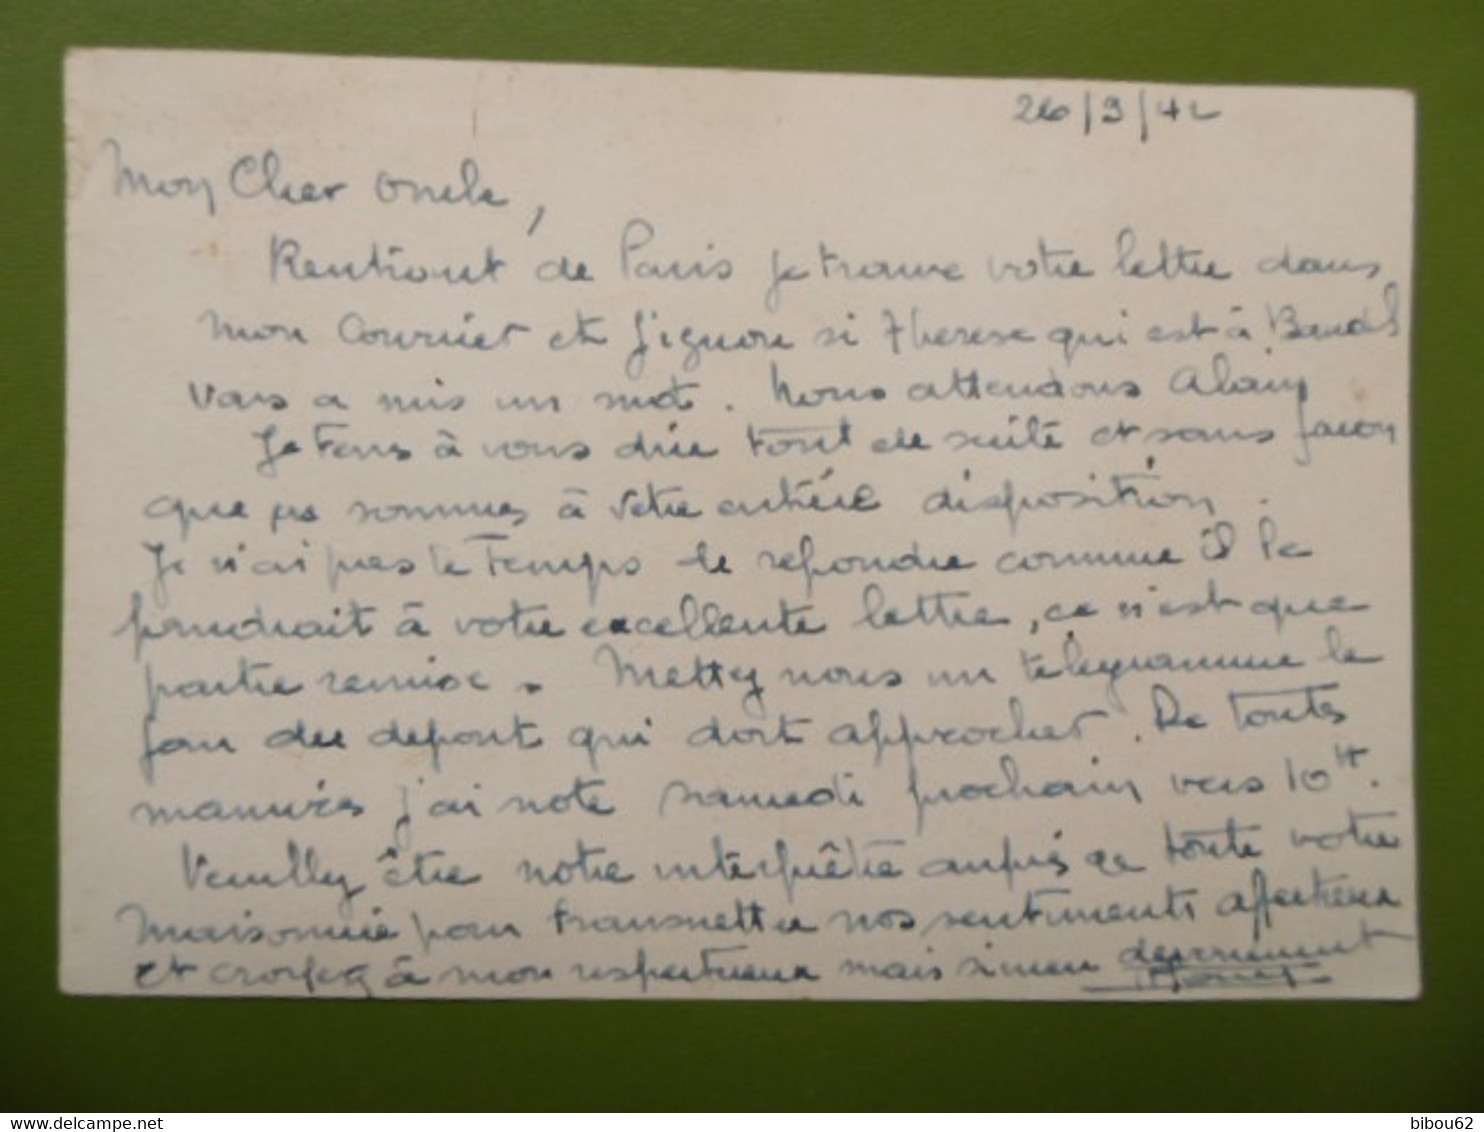 26/9/42
Mon Cher Oncle,
Rentrant de Paris je trouve votre lettre dans
mon courrier et j'ignore si Therese qui est à Bandol
vous a mis un mot. Nous attendons Alain
Je tiens à vous dire tout de suite et sans facon
que ns sommes à votre entière disposition.
Je n'ai pas le temps de repondre comme il le
faudrait à votre excellente lettre, ce n'est que
partie remise. Mettez nous un telegramme le
jour du depart qui doit approcher. De toutes
manières j'ai note samedi prochain vers 10H.
Veuillez être notre interprête auprès de toute votre
maisonnée pour transmettre nos sentiments affectueux
et croyez à mon respectueux mais
delcampe.net
bibou62